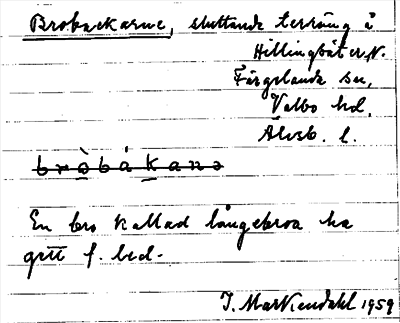 Brobackarne, sluttande terräng å
Hillingsäter, N.
Färgelanda sn,
Valbo hd,
Älvsb. l.
bròbákana
En bro kallad långebroa ha
gett f. led.
J. Markendahl 1959